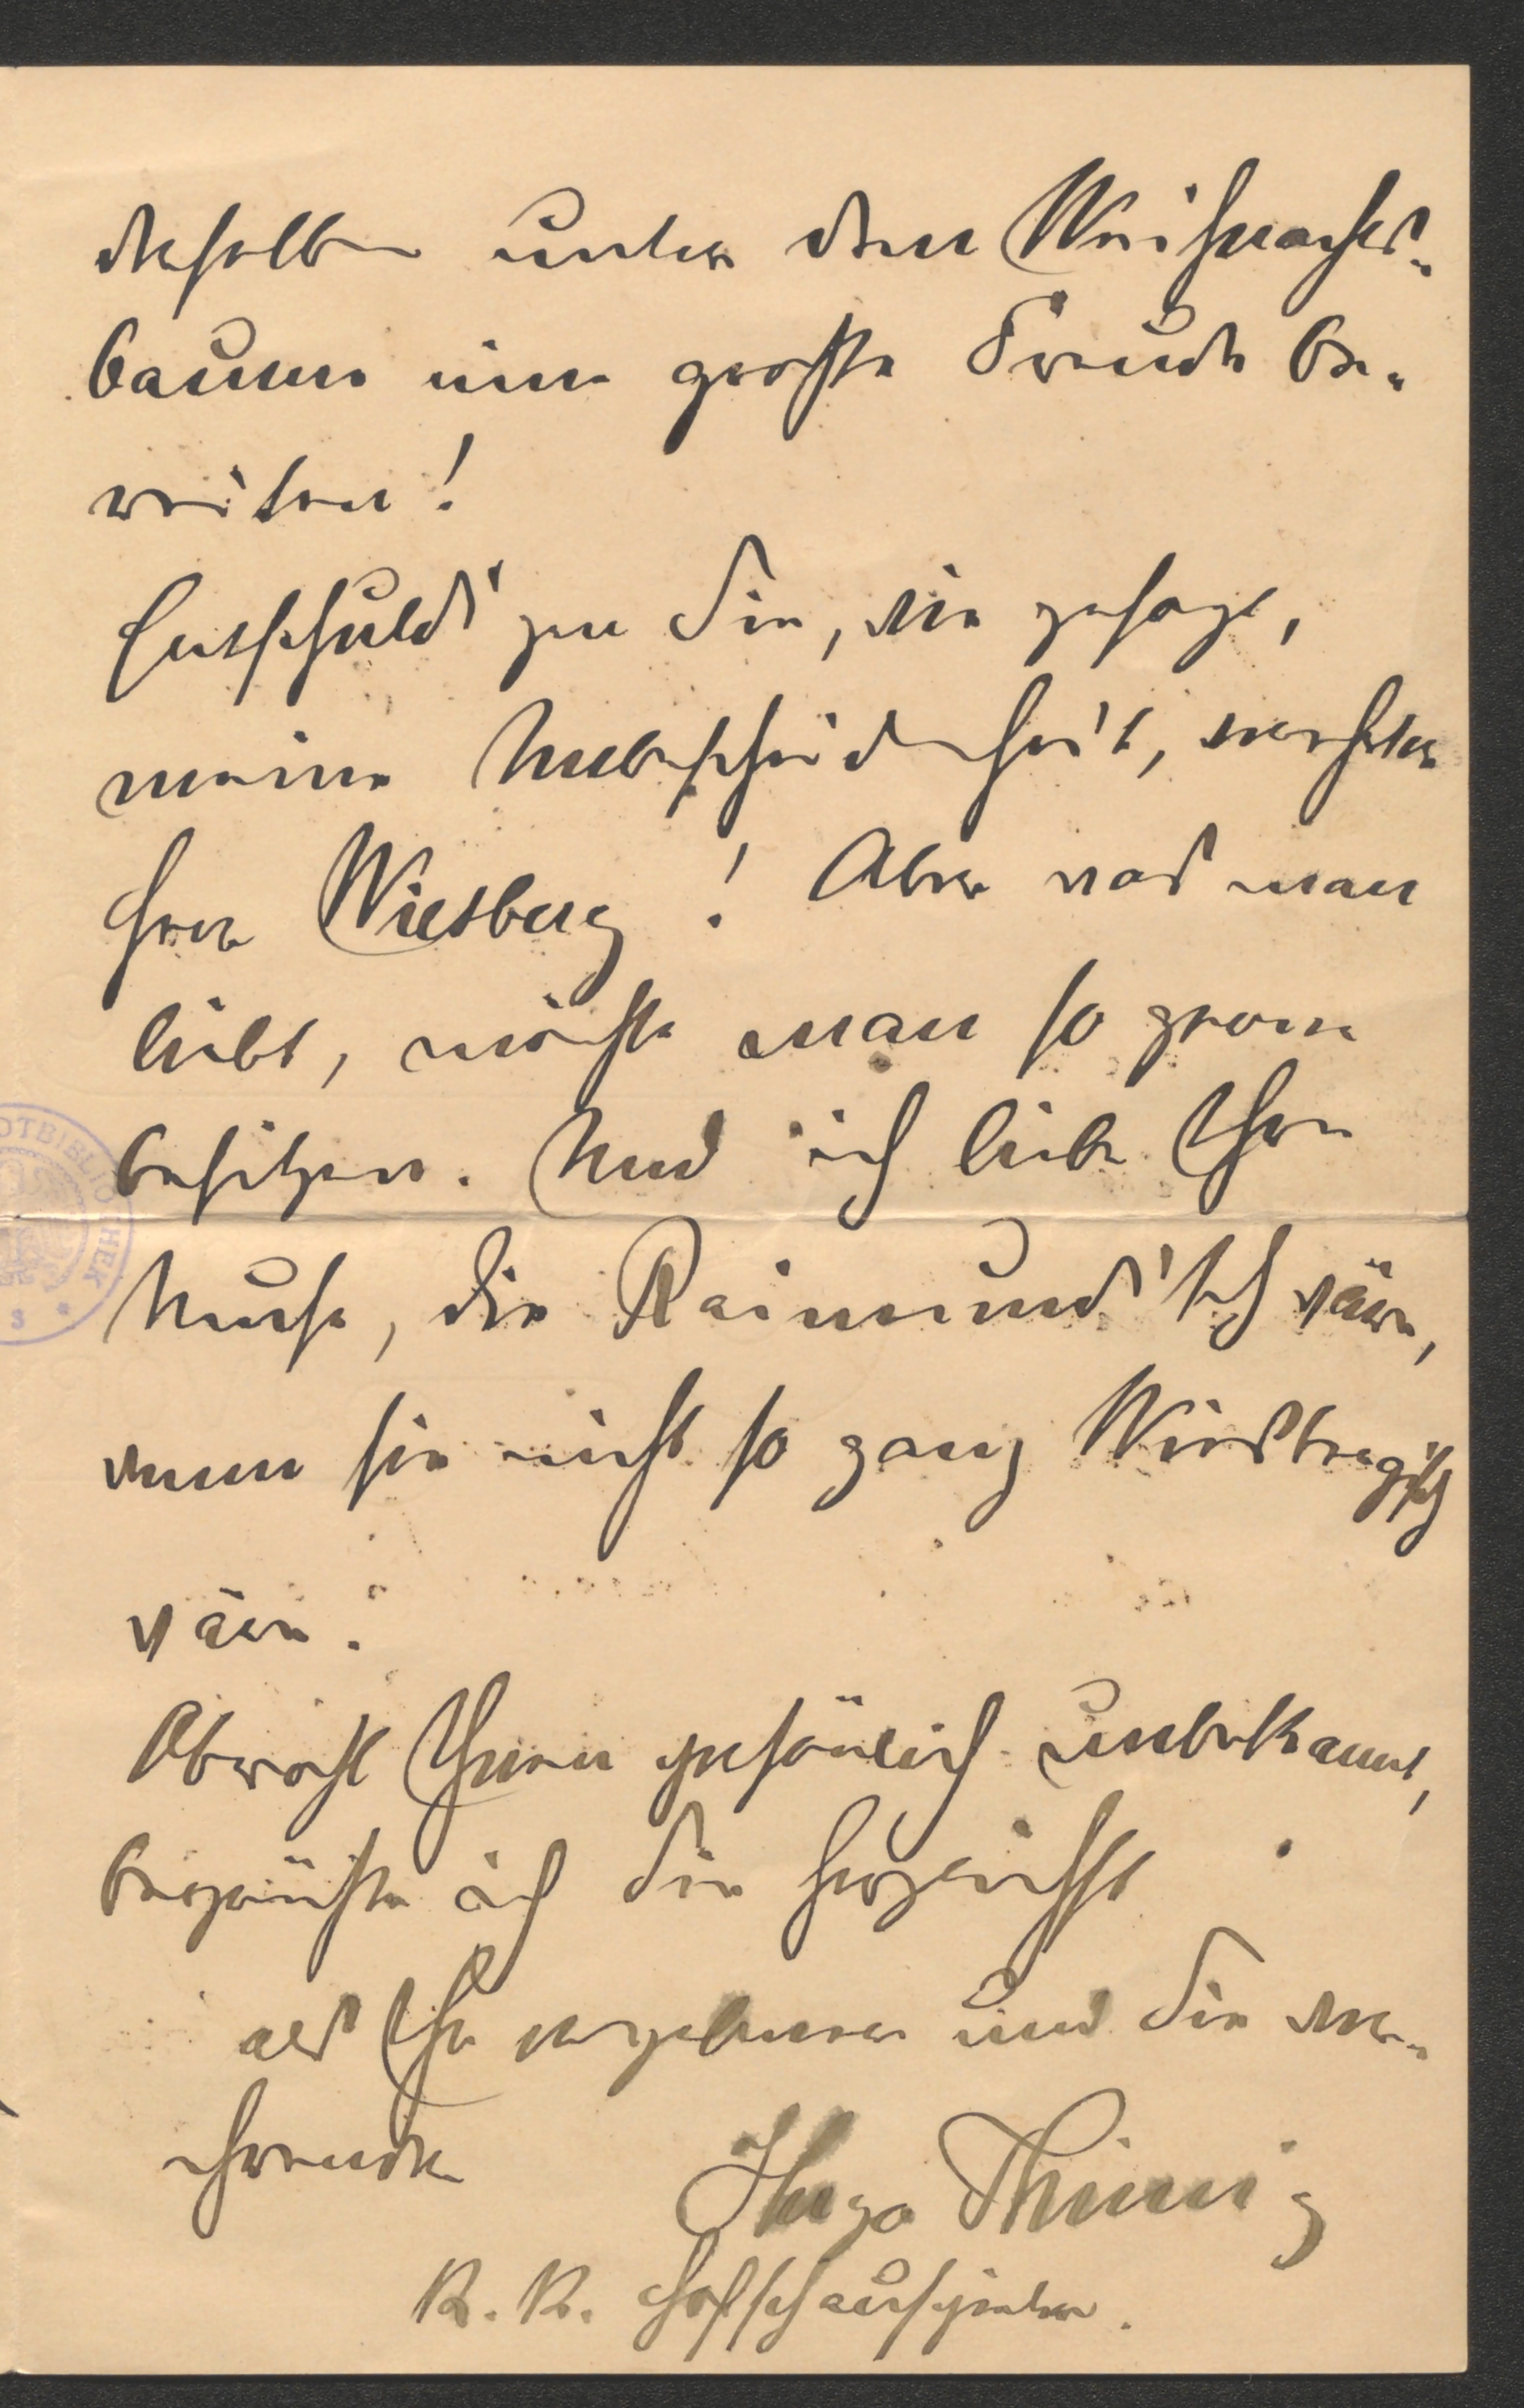 derselben unter dem Weihnachts-
baume eine große Freude be-
reiten!
Entschuldigen Sie, wie gesagt,
meine Unbescheidenheit, verehrter
Herr Wiesberg! Aber was man
liebt, möchte man so gerne
besitzen. Und ich liebe Ihre
Muse, die Raimund'sch wäre,
wenn sie nicht so ganz Wiesbergisch
wäre.
Obwohl Ihnen persönlich unbekannt,
begrüße ich Sie herzlichst
als Ihr ergebener und Sie ver-
ehrender
Hugo Thimig
K. K. Hofschauspieler.